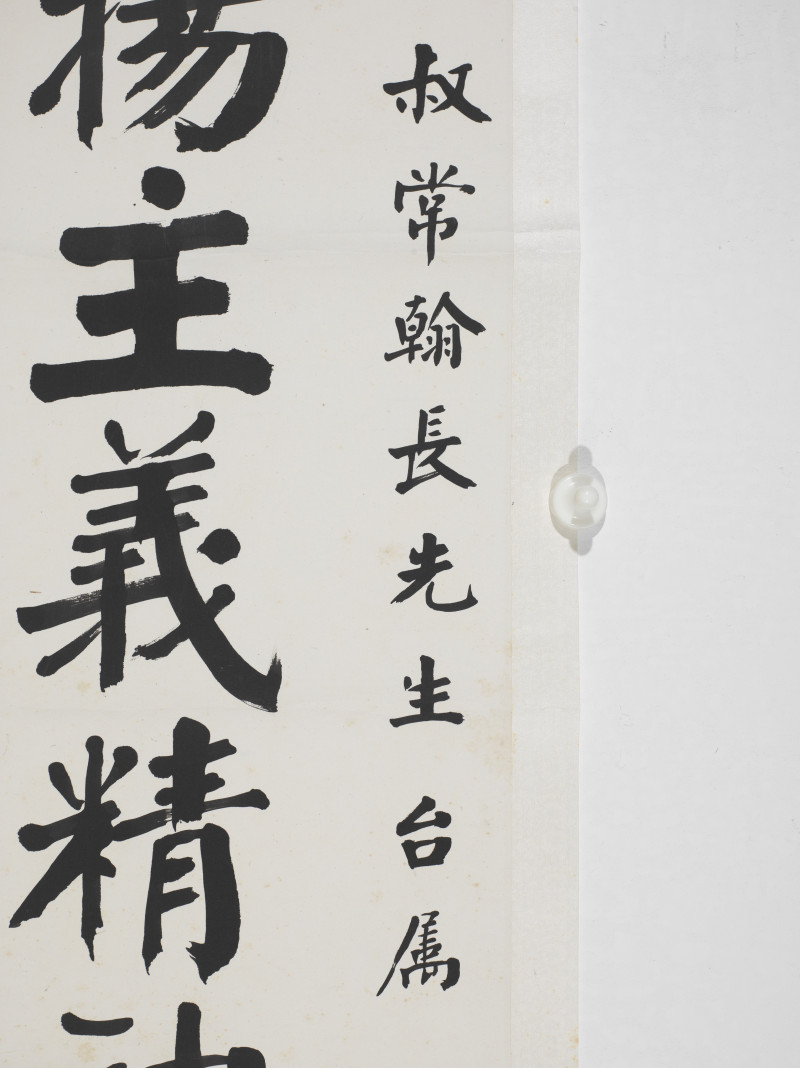 叔常翰長先生台属
揚主義精神